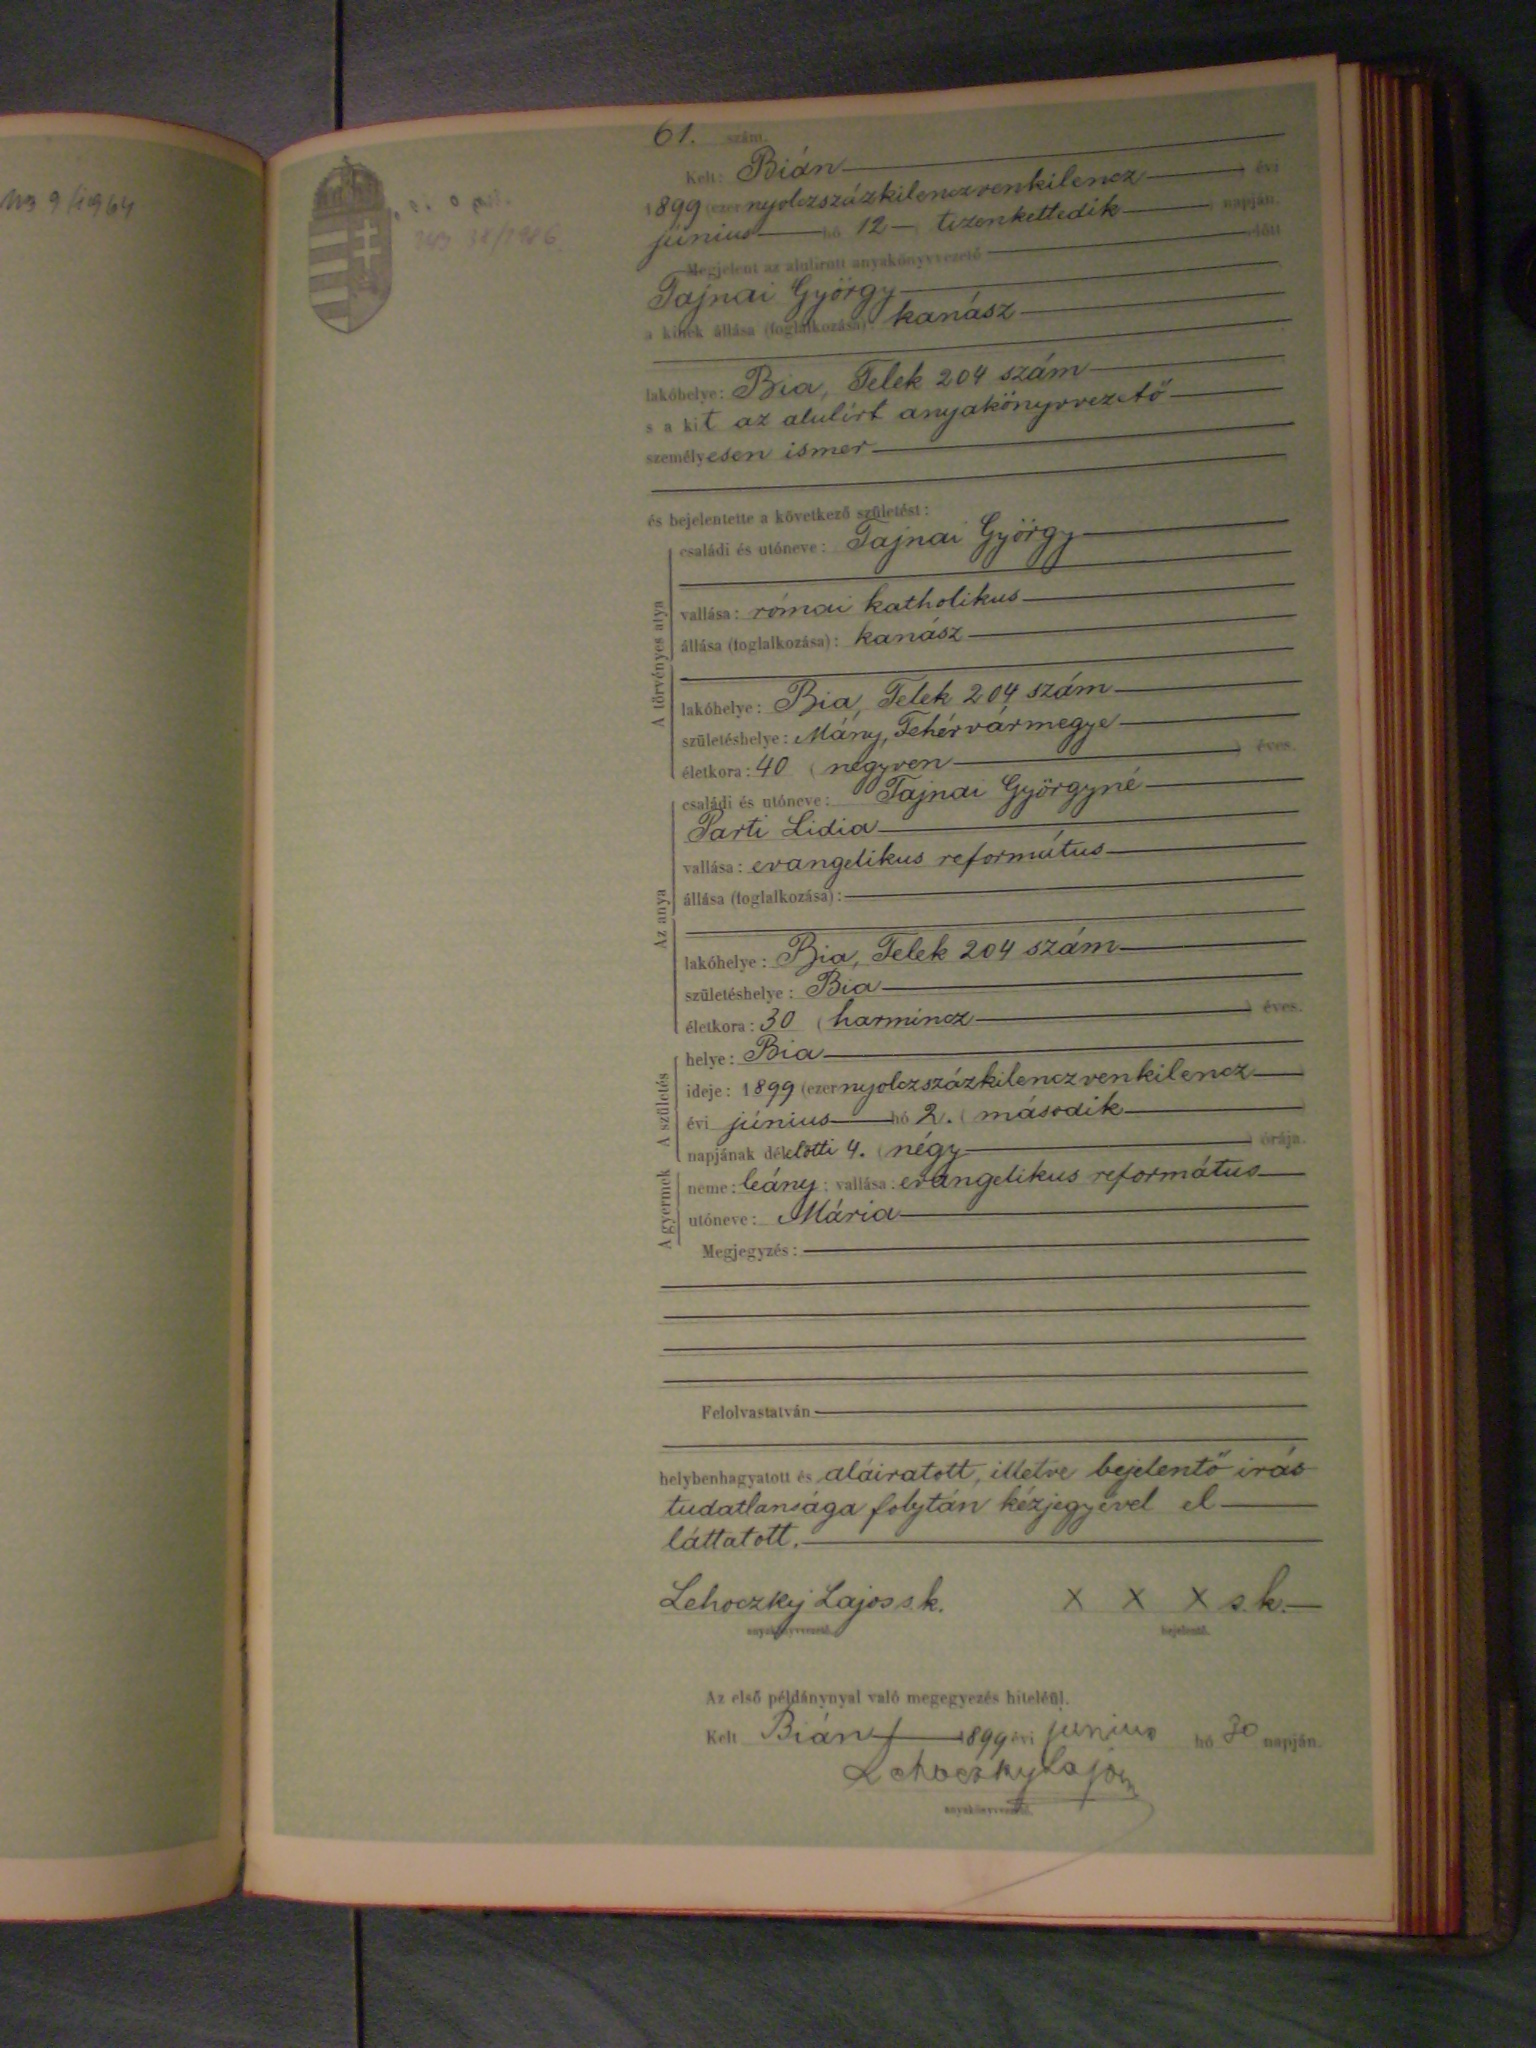 61. szám.
Kelt: Bián
1899 (ezernyolczszázkilenczvenkilencz) évi
június hó 12 (tizenkettedik) napján.
Megjelent az alulirott anyakönyvvezető előtt
Tajnai György
a kinek állása (foglalkozása): kanász
lakóhelye: Bia, Telek 204 szám
s a kit az alulírt anyakönyvvezető
személyesen ismer
és bejelentette a következő születést:
A törvényes atya
családi és utóneve: Tajnai György
vallása: római katholikus
állása (foglalkozása): kanász
lakóhelye: Bia, Telek 204 szám
születéshelye: Mány, Fehérvármegye
életkora: 40 (negyven) éves.
Az anya
családi és utóneve: Tajnai Györgyné
Parti Lidia
vallása: evangelikus református
állása (foglalkozása):
lakóhelye: Bia, Telek 204 szám
születéshelye: Bia
életkora: 30 (harmincz) éves.
A születés
helye: Bia
ideje: 1899 (ezernyolczszázkilenczvenkilencz)
évi június hó 2. (második)
napjának délelőtti 4. (négy) órája.
A gyermek
neme: leány; vallása: evangelikus református
utóneve: Mária
Megjegyzés:
Felolvastatván
helybenhagyatott és aláiratott, illetve bejelentő irás
tudatlansága folytán kézjegyével el
láttatott.
Lehoczky Lajos s.k. X X X s.k.
anyakönyvvezető. bejelentő.
Az első példánynyal való megegyezés hiteléül.
Kelt Bián 1899 évi június hó 30 napján.
Lehoczky Lajos
anyakönyvvezető.